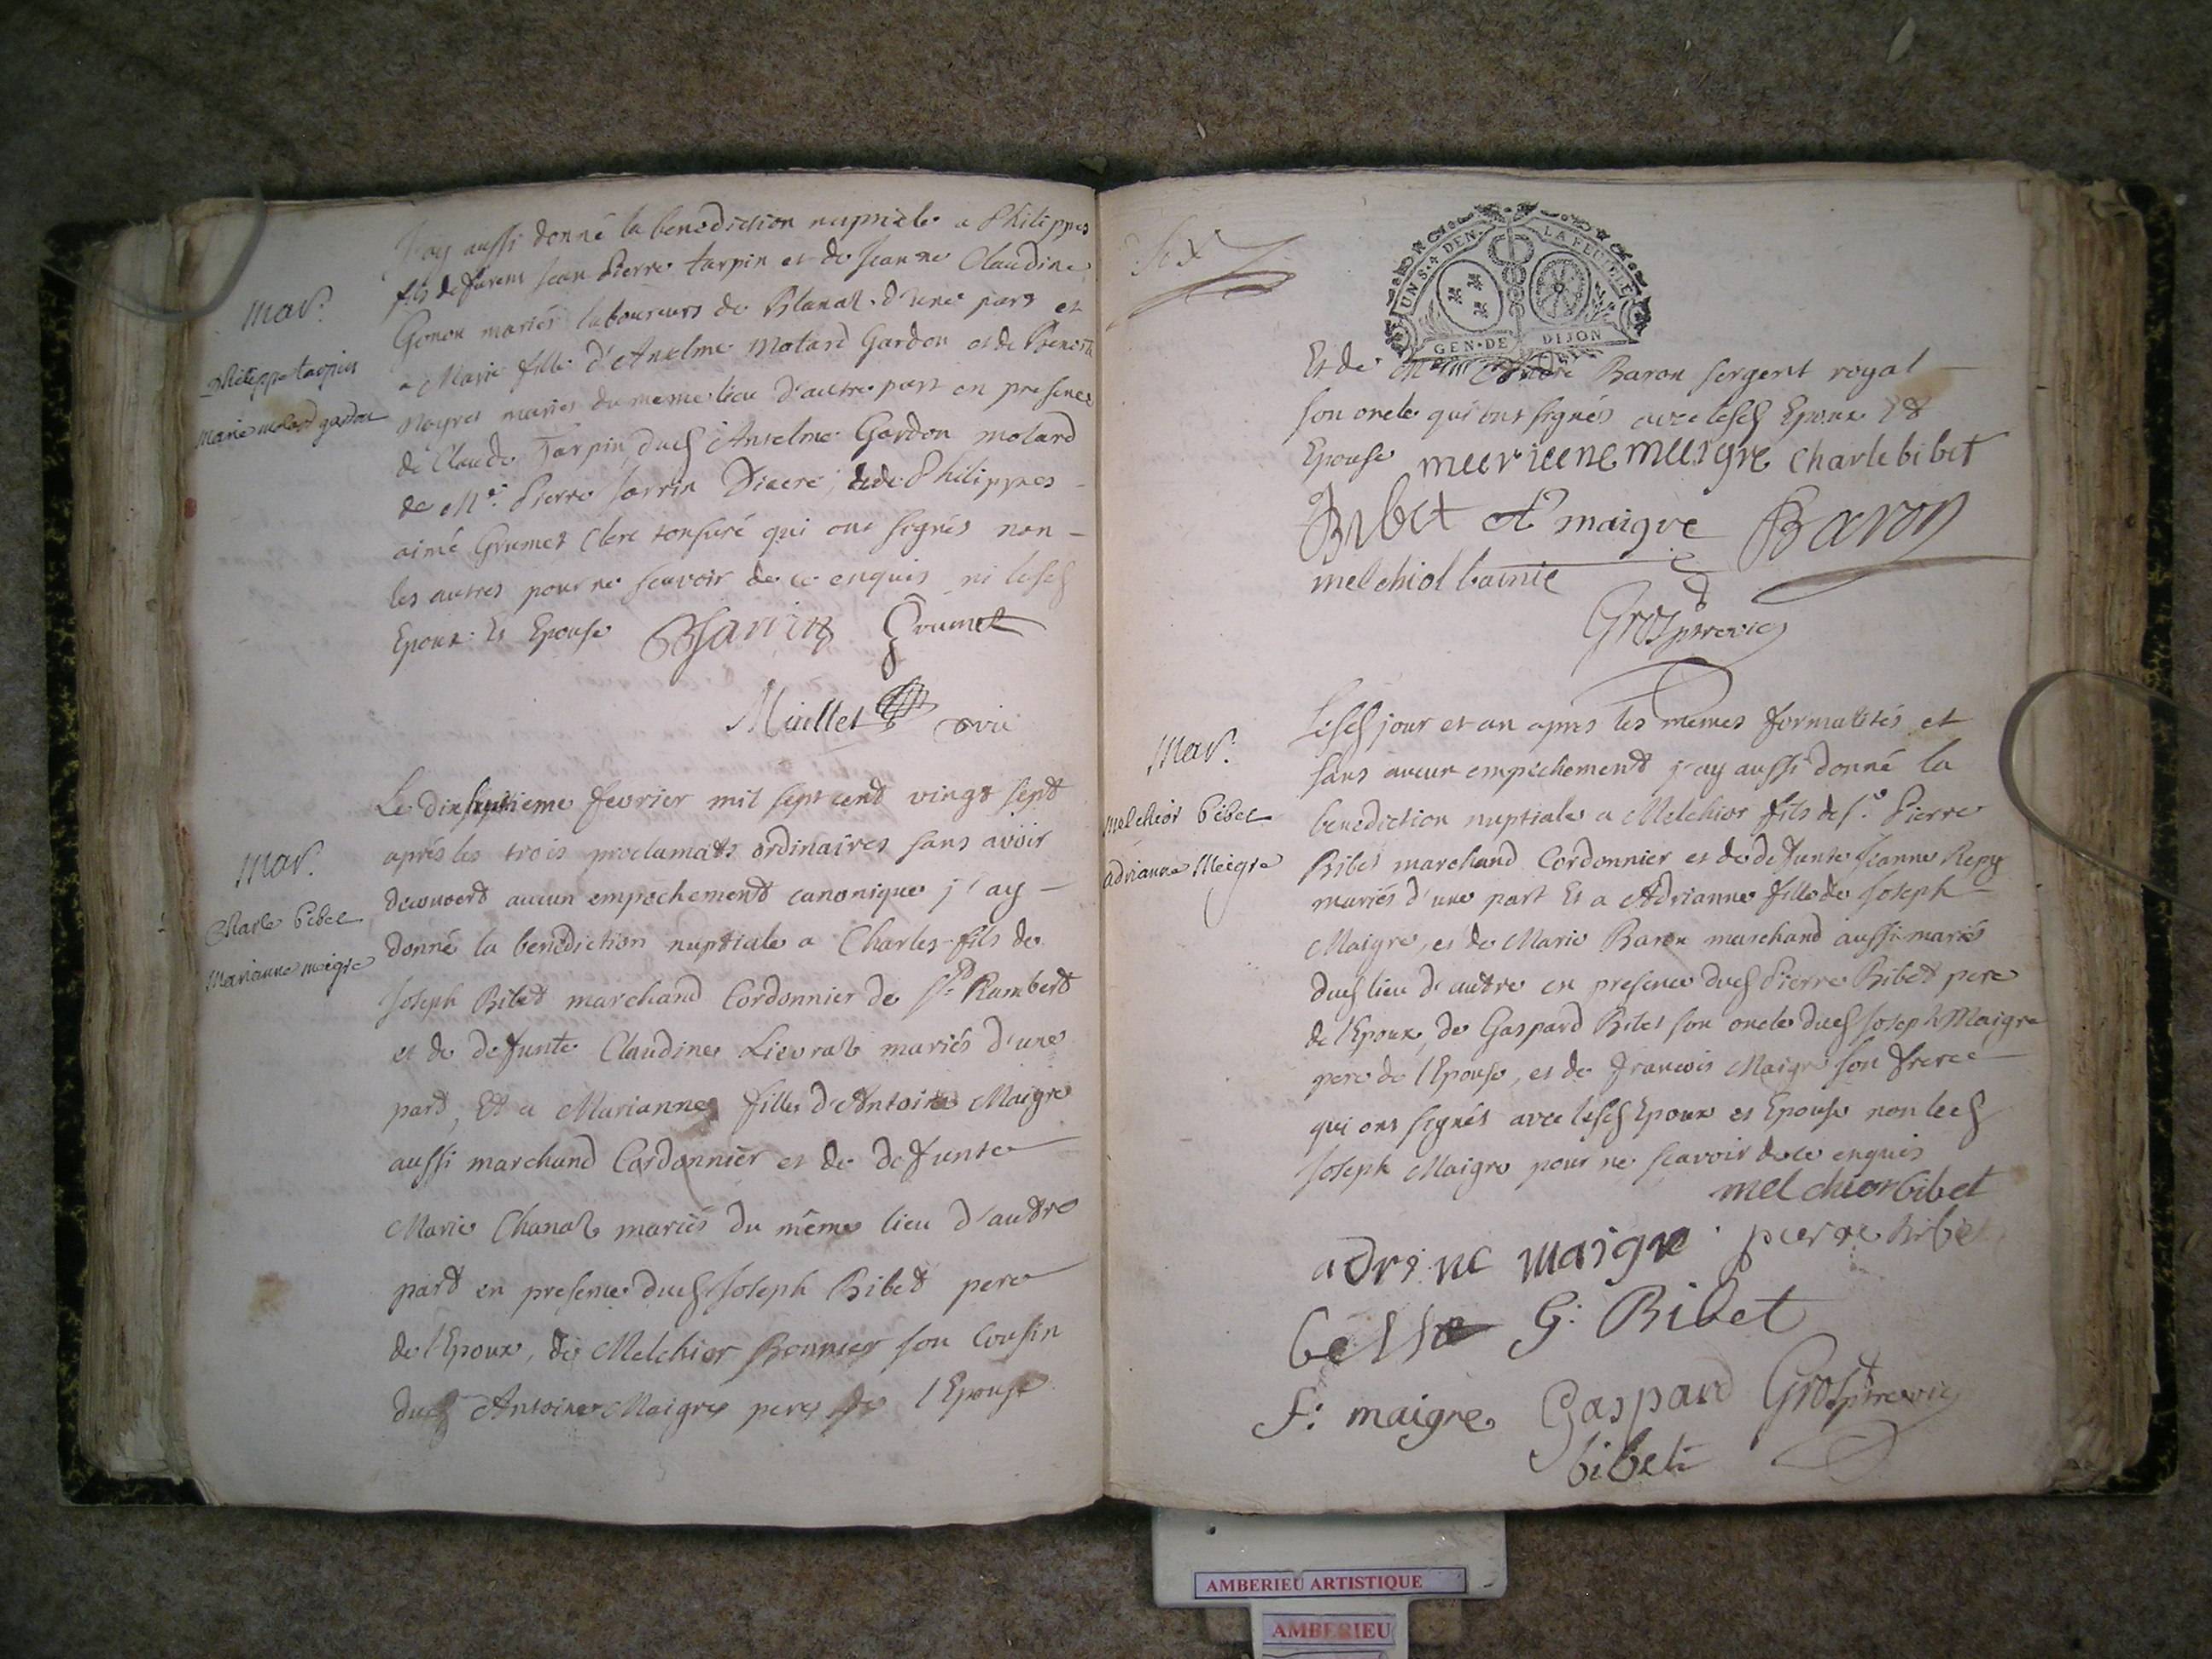 J'ay aussi donné la benediction nuptiale a Philippes
fils de furent Jean Pierre tarpin et de Jeanne Claudine
Genon mariés laboureurs de Blanaz d'une part et
a Marie fille d'Anselme Molard Gardon et de Benoite
mariés du meme lieu d'autre part en presence
de Claude Tarpin, dud Anselme Gardon molard
de Me. Pierre Sarrin Diacre, & de Philippes
aimé Grumet Clerc tonsuré qui ont signés non
les autres pour ne scavoir de ce enquis ni lesd
Epoux Et Epouse Grumet
Mullet vic
Mar.
philippe tarpin
Marie molard gardon
Le dixseptieme fevrier mil sept cent vingt sept
après les trois proclamats ordinaires sans avoir
decouvert aucun empechement canonique j'ay
donné la benediction nuptiale a Charles fils de
Joseph Bibet marchand Cordonnier de St. Rambert
et de defunte Claudine Lievraz mariés d'une
part, Et a Marianne fille d'Antoine Maigre
aussi marchand Cordonnier et de defunte
Marie Chanaz mariés du même lieu d'autre
part en presence dud Joseph Bibet pere
de l'Epoux, de Melchior Bonnier son Cousin
dud Antoine Maigre pere de l'Epouse
Mar.
Charle bibet
Marianne maigre
UN S. 4 DEN. LA FEUILLE
GEN. DE DIJON
Et de Baron sergent royal
son oncle qui ont signés avec lesd Epoux &
Epouse meerieene meeigre Charle bibet
Bibet A maigre Baron
melchiol
Grosp
Lesd jour et an apres les mêmes formalités et
sans aucun empechement j'ay aussi donné la
benediction nuptiale a Melchior fils de Sr. Pierre
Bibet marchand Cordonnier et de defunte Jeanne Repy
mariés d'une part Et a Adrianne fille de Joseph
Maigre, et de Marie Baron marchand aussi mariés
dud lieu d'autre en presence dud Pierre Bibet pere
de l'Epoux, de Gaspard Bibet son oncle dud Joseph Maigre
pere de l'Epouse, et de francois Maigre son frere
qui ont signés avec lesd Epoux et Epouse non led
Joseph Maigre pour ne scavoir de ce enquis
melchior bibet
adri ne maigre pierre bibet
G. Bibet
f. maigre Gaspard Grosp
bibet
Mar.
melchior bibet
adrianne Meigre
AMBERIEU ARTISTIQUE
AMBERIEU